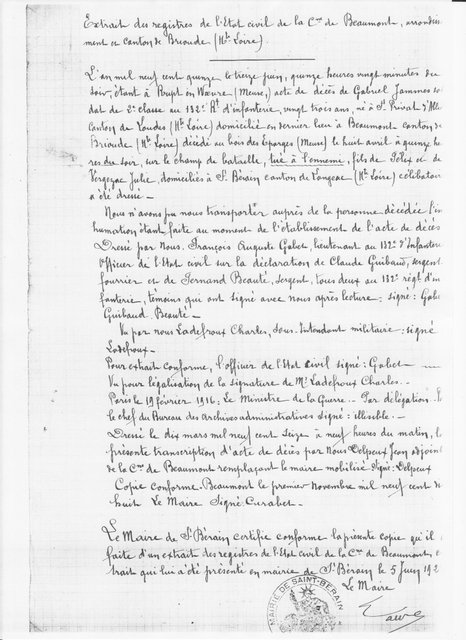 Extrait des registres de l'Etat civil de la Cne de Beaumont, arrondis
sement et Canton de Brioude (Hte Loire).
L'an mil neuf cent quinze le treize juin, quinze heures vingt minutes du
soir, étant à Rupt en Woëvre (Meuse), acte de décès de Gabriel Jammes sol
dat de 2e classe au 132e Rt d'infanterie, vingt trois ans, né à St Privat d'All
Canton de Loudes (Hte Loire) domicilié en dernier lieu à Beaumont canton de
Brioude (Hte Loire) décédé au bois des Eparges (Meuse) le huit avril à quinze heu
res du soir, sur le champ de bataille, tué à l'ennemi, fils de Félix et de
Vergezac Julie, domiciliés à St Bérain canton de Langeac (Hte Loire) célibataire
a été dressé —
Nous n'avons pu nous transporter auprès de la personne décédée l'in
humation étant faite au moment de l'établissement de l'acte de décès
Dressé par Nous François Auguste Gobet, lieutenant au 132e d'Infanterie
Officier de l'Etat civil sur la déclaration de Claude Guibaud, sergent
fourrier et de Fernand Beauté, sergent, tous deux au 132e régt d'in
fanterie, témoins qui ont signé avec nous après lecture; signé: Gobe
Guibaud. Beauté —
Vu par nous Ladefroux Charles, sous-Intendant militaire; signé
Ladefroux —
Pour extrait conforme, l'officier de l'Etat Civil signé: Gobet —
Vu pour légalisation de la signature de Mr Ladefroux Charles. —
Paris le 19 février 1916; Le Ministre de la Guerre — Par délégation.
le chef du Bureau des Archives administratives Signé: illisible. —
Dressé le dix mars mil neuf cent seize à neuf heures du matin, l
présente transcription d'acte de décès par Nous Delpeux Jean adjoint
de la Cne de Beaumont remplaçant le maire mobilisé Signé: Delpeux
Copie conforme. Beaumont le premier novembre mil neuf cent dix
huit Le Maire Signé Curabet —
Le Maire de St Bérain certifie conforme la présente copie qu'il
faite d'un extrait des registres de l'Etat civil de la Cne de Beaumont, e
trait qui lui a été présenté en mairie de St Bérain le 5 Juin 192
Le Maire
MAIRIE DE SAINT-BERAIN